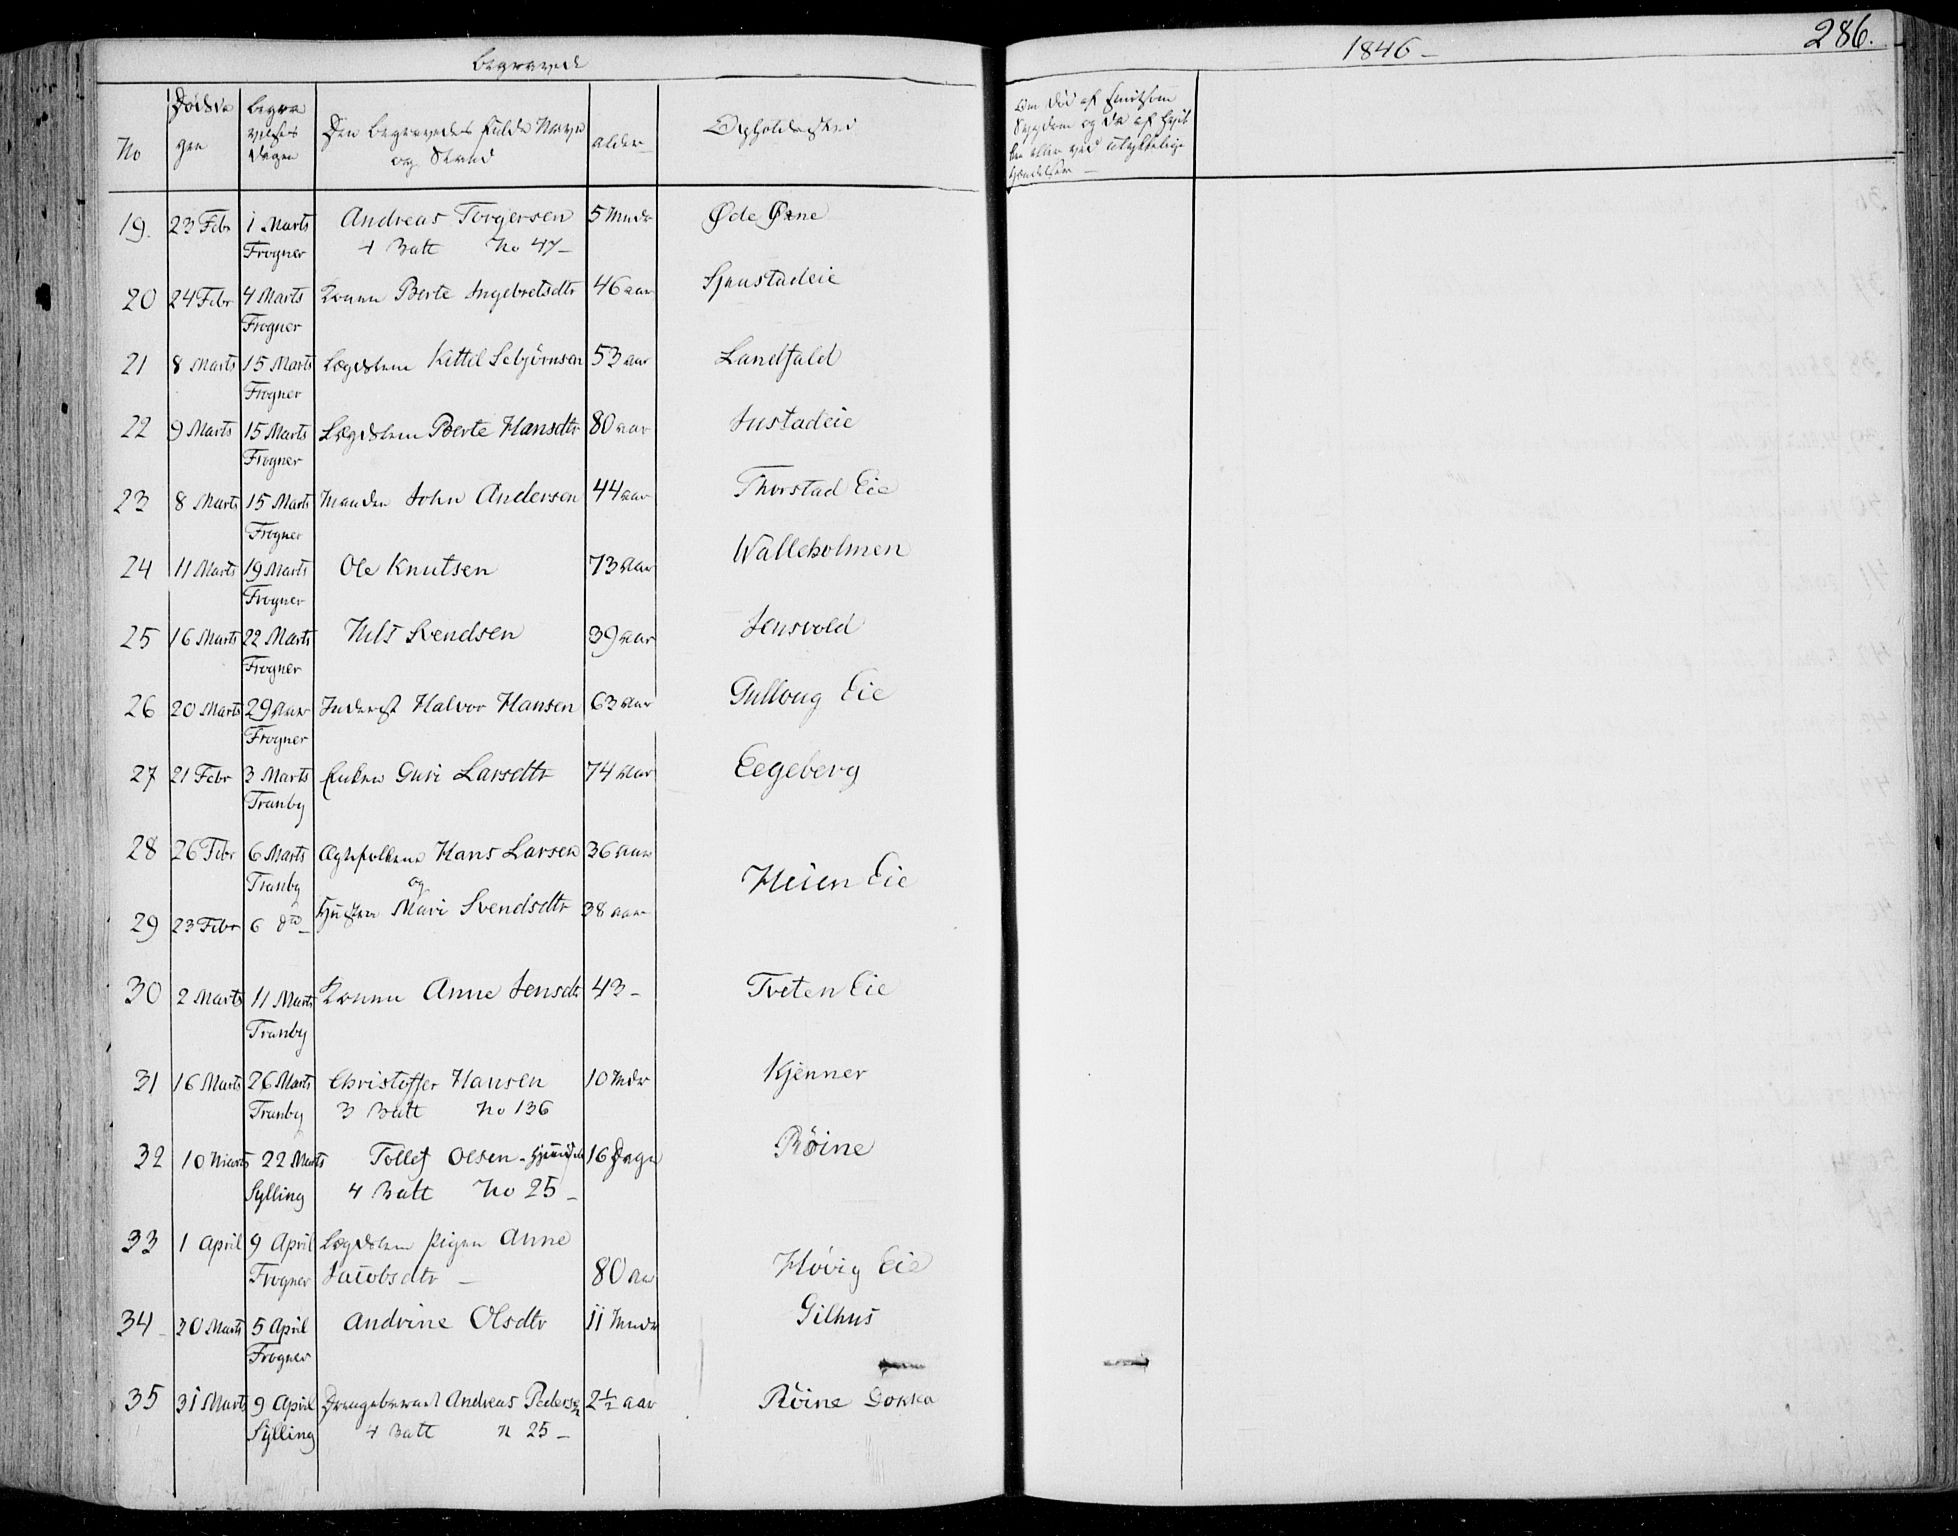 Begravede
1846 –
286.
No
Dødsda
gen
Begra
velses
Dagen
Den Begravedes fulde Navn
og Stand
Alder
Opholdssted
Om død af smitsom
Sygdom og da af hvil
ken eller ved ulykkelige
Hændelser –
19. 23 Febr 1 Marts Andreas Torgersen 5 Mndr Øde Øxne
Frogner 4 Batt No 47 –
20 24 Febr 4 Marts Konen Berte Ingebretsdtr 46 aar Sjaustadeie
Frogner
21 8 Marts 15 Marts Lægdslem Kittil Sebjørnsen 53 aar Landfald
Frogner
22 9 Marts 15 Marts Lægdslem Berte Hansdtr 80 aar Justadeie
Frogner
23 8 Marts 15 Marts Manden John Andersen 44 aar Thorstad Eie
Frogner
24 11 Marts 19 Marts Ole Knutsen 73 aar Walleholmen
Frogner
25 16 Marts 22 Marts Nils Svendsen 39 aar Jensvold
Frogner
26 20 Marts 29 Inderst Halvor Hansen 63 aar Gulloug Eie
Frogner
27 21 Febr 3 Marts Enken Guri Larsdtr 74 aar Eegeberg
Tranby
28 26 Febr 6 Marts Ægtefolkene Hans Larsen 36 aar
Tranby og Heien Eie
29 23 Febr 6 dto – Hustru Mari Svendsdtr 38 aar
30 2 Marts 11 Marts Konen Anne Jensdtr 43 – Tveten Eie
Tranby
31 16 Marts 26 Marts Christoffer Hansen 10 Mdr Kjenner
Tranby 3 Batt No 136
32 10 Marts 22 Marts Tollef Olsen – Hjemdøbt 16 Dage Røine
Sylling 4 Batt No 25 –
33 1 April 9 April Lægdslem Pigen Anne
Frogner Jacobsdtr – 80 aar Høvig Eie
34 – 30 Marts 5 April Andrine Olsdtr 11 Mndr Gilhus
Frogner
35 31 Marts 9 April Drengebarnet Andreas Pedersen 2½ aar Røine Dokka
Sylling 4 Batt n 25 –